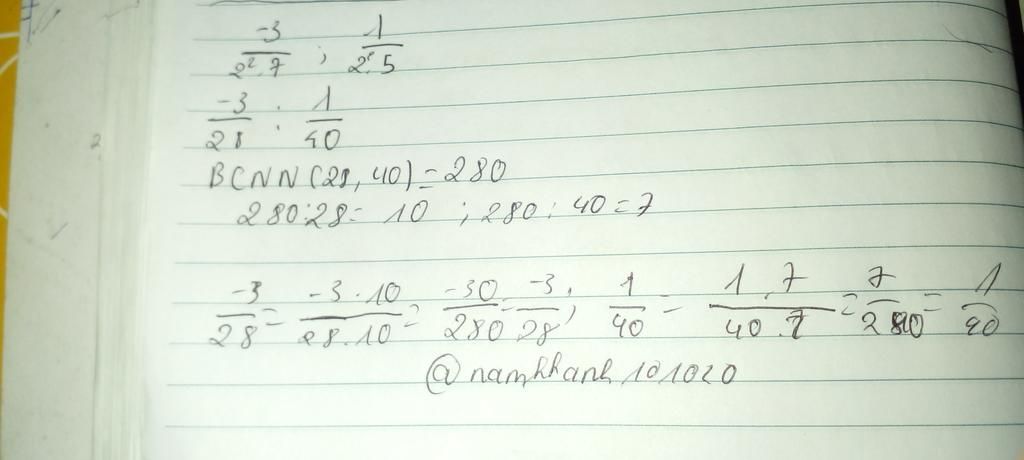 -3/2².7 ; 1/2³.5
-3/28 ; 1/40
BCNN(28, 40) = 280
280:28 = 10 ; 280 : 40 = 7
-3/28 = -3.10/28.10 = -30/280 = -3/28 ; 1/40 = 1.7/40.7 = 7/280 = 1/40
@namkhanh101020